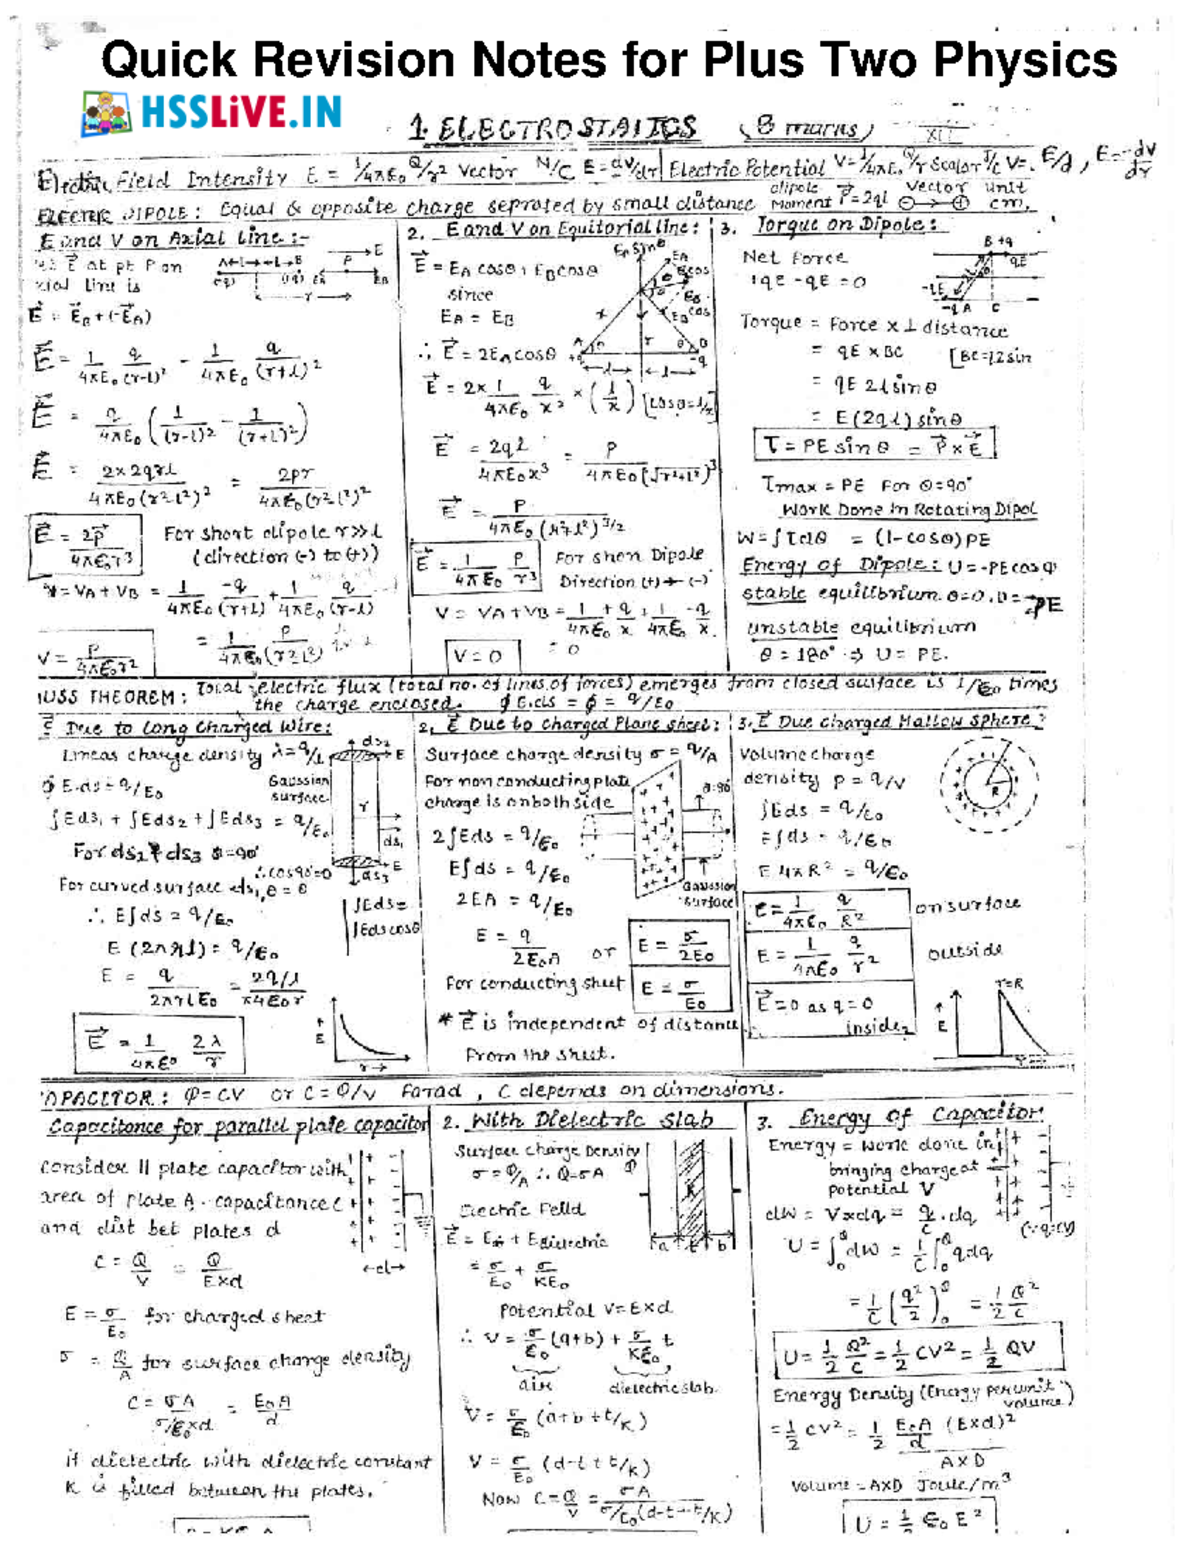 Quick Revision Notes for Plus Two Physics
HSSLiVE.IN
1. ELECTROSTATICS (8 marks) XII
Electric Field Intensity E = 1/4πε0 Q/r² Vector N/C E = -dV/dr | Electric Potential V = 1/4πε0 Q/r Scalar J/C V = E/d, E = -dV/dr
ELECTRIC DIPOLE: Equal & opposite charge seprated by small distance dipole Moment P = 2ql Vector unit cm.
E and V on Axial line :-
E at pt P on
xial line is
E = EB + (-EA)
E = 1/4πε0 q/(r-l)² - 1/4πε0 q/(r+l)²
E = q/4πε0 (1/(r-l)² - 1/(r+l)²)
E = 2x2qrl/4πε0(r²l²)² = 2pr/4πε0(r²l²)²
E = 2P/4πε0r³ For short dipole r>>l
(direction (-) to (+))
V = VA + VB = 1/4πε0 -q/(r+l) + 1/4πε0 q/(r-l)
= 1/4πε0 P/(r²l²)
V = P/4πε0r²
2. E and V on Equitorial line:
E = EA cosθ + EB cosθ
since
EA = EB
∴ E = 2EA cosθ
E = 2x 1/4πε0 q/x² × (l/x) [cosθ = l/x]
E = 2ql/4πε0x³ = P/4πε0(√r²+l²)³
E = P/4πε0(r²+l²)^3/2
E = 1/4πε0 P/r³ For short Dipole
Direction (+) → (-)
V = VA + VB = 1/4πε0 +q/x + 1/4πε0 -q/x
= 0
V = 0
3. Torque on Dipole:
Net Force
+qE - qE = 0
Torque = Force x ⊥ distance
= qE x BC [BC = l2 sin
= qE 2l sinθ
= E(2ql) sinθ
τ = PE sinθ = P x E
τmax = PE For θ = 90°
Work Done in Rotating Dipol
W = ∫τdθ = (1-cosθ)PE
Energy of Dipole: U = -PE cosθ
stable equilibrium θ=0, U = -PE
unstable equilibrium
θ = 180° ⇒ U = PE.
USS THEOREM: Total electric flux (total no. of lines of forces) emerges from closed surface is 1/ε0 times
the charge enclosed. ∮ E.ds = φ = q/ε0
E Due to Long Charged Wire:
Linear charge density λ = q/l
∮ E.ds = q/ε0 Gaussian surface
∫Eds1 + ∫Eds2 + ∫Eds3 = q/ε0
For ds2 & ds3 θ = 90°
∴ cos90° = 0
For curved surface ds1, θ = 0
∫Eds = ∫Eds cosθ
∴ E∫ds = q/ε0
E (2πrl) = q/ε0
E = q/2πrlε0 = 2q/l/x4ε0r
E = 1/4πε0 2λ/r
2. E Due to charged Plane sheet:
Surface charge density σ = q/A
For non conducting plate
charge is on both side θ = 90°
2∫Eds = q/ε0
E∫ds = q/ε0
2EA = q/ε0
Gaussian surface
E = q/2ε0A or E = σ/2ε0
For conducting sheet E = σ/ε0
* E is independent of distance
From the sheet.
3. E Due charged Hallow sphere:
Volume charge
density ρ = q/V
∫Eds = q/ε0
E∫ds = q/ε0
E 4πR² = q/ε0
E = 1/4πε0 q/R² on surface
E = 1/4πε0 q/r² outside
E = 0 as q = 0 inside r=R
APACITOR: Q = CV or C = Q/V Farad, C depends on dimensions.
Capacitance for parallel plate capacitor
consider II plate capacitor with
area of plate A. capacitance C
and dist bet plates d
C = Q/V = Q/Exd ←d→
E = σ/ε0 for charged sheet
σ = Q/A for surface charge density
C = σA/σ/ε0xd = ε0A/d
if dielectric with dielectric constant
K is filled between the plates.
2. With Dielectric Slab
Surface Charge Density
σ = Q/A ∴ Q = σA
Electric Feild
E = Eair + Edielectric
= σ/ε0 + σ/Kε0
Potential V = Exd
∴ V = σ/ε0 (a+b) + σ/Kε0 t
air dielectric slab
V = σ/ε0 (a+b+t/K)
V = σ/ε0 (d-t+t/K)
Now C = Q/V = σA/σ/ε0(d-t+t/K)
3. Energy of Capacitor:
Energy = work done in
bringing charge at
potential V
dW = Vxdq = q/C . dq (∵ q=CV)
U = ∫dW = 1/C ∫q dq
= 1/C (q²/2) = 1/2 Q²/C
U = 1/2 Q²/C = 1/2 CV² = 1/2 QV
Energy Density (Energy per unit volume)
= 1/2 CV² = 1/2 ε0A/d (Exd)²/AXD
Volume = AXD Joule/m³
U = 1/2 ε0 E²